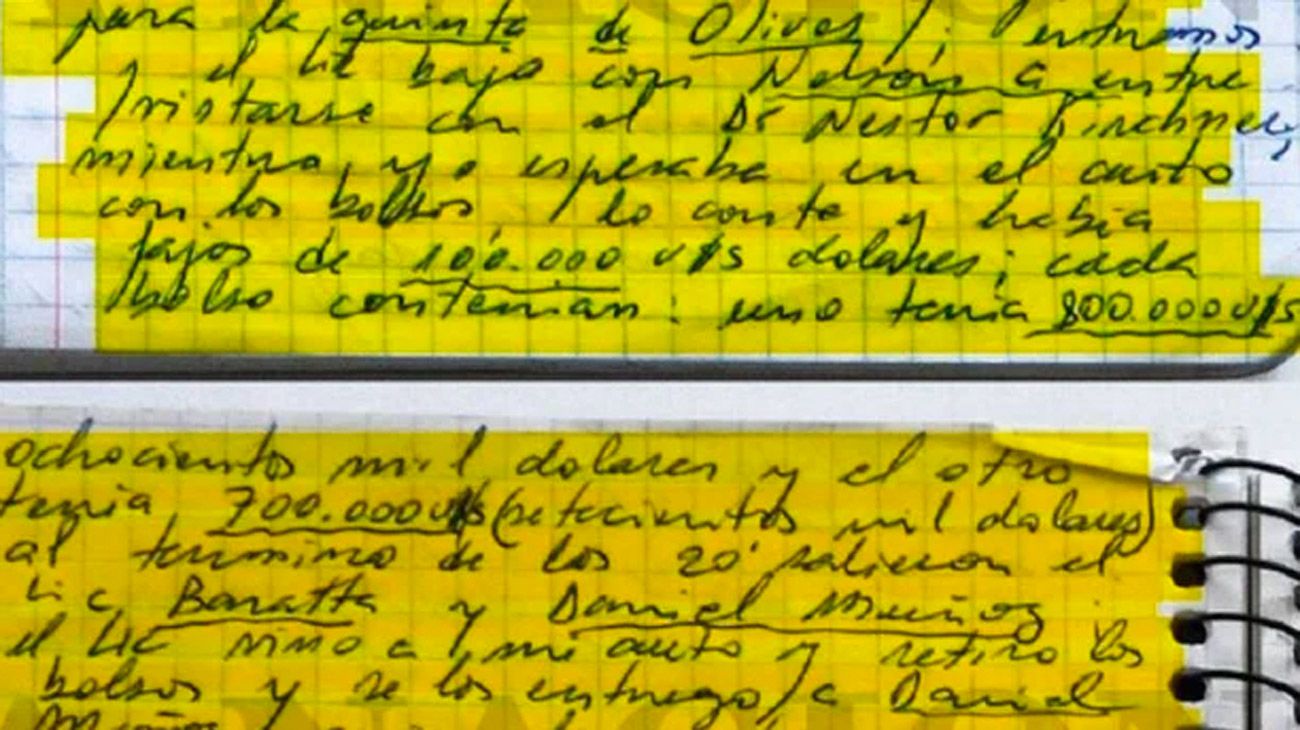 para la quinta de Olivos/; entramos
y el Lic bajo con Nelson a entre
/vistarse con el Dr Nestor Kirchner,
mientras yo esperaba en el auto
con los bolsos, / lo conte y habia
fajos de 100.000 u$s dolares; cada
/bolso contenian: uno tenia 800.000 u$s
ochocientos mil dolares y el otro
tenia 700.000 u$s (setecientos mil dolares)
al termino de los 20' salieron el
Lic Baratta y Daniel Muñoz
el LIC vino a mi auto y retiro los
bolsos y se los entrego/a Daniel
Muñoz